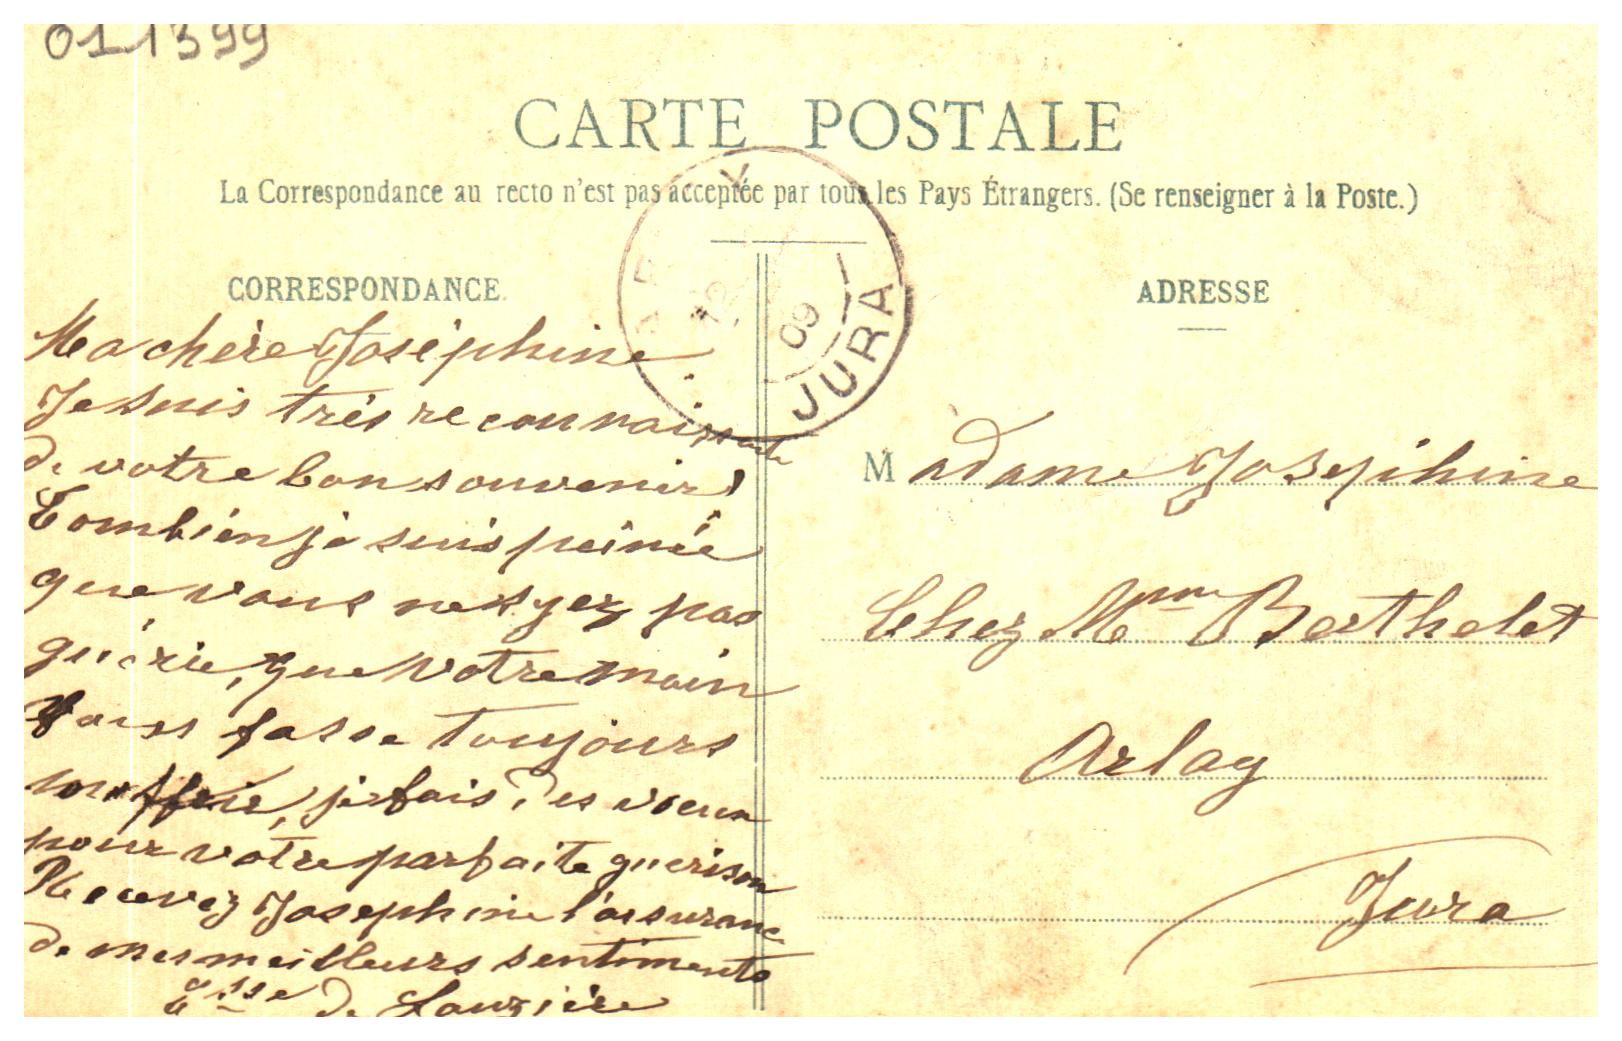 011399
CARTE POSTALE
La Correspondance au recto n'est pas acceptée par tous les Pays Étrangers. (Se renseigner à la Poste.)
CORRESPONDANCE
Ma chère Joséphine
Je suis très reconnaissante
de votre bon souvenir!
Combien je suis peinée
que vous ne soyez pas
guérie, que votre main
vous fasse toujours
souffrir, je fais des voeux
pour votre parfaite guerison
Recevez Josephine l'assurance
de mes meilleurs sentiments
Csse de Lauzière
09
JURA
ADRESSE
Madame Josephine
Chez Mme Berthelet
Arlay
Jura